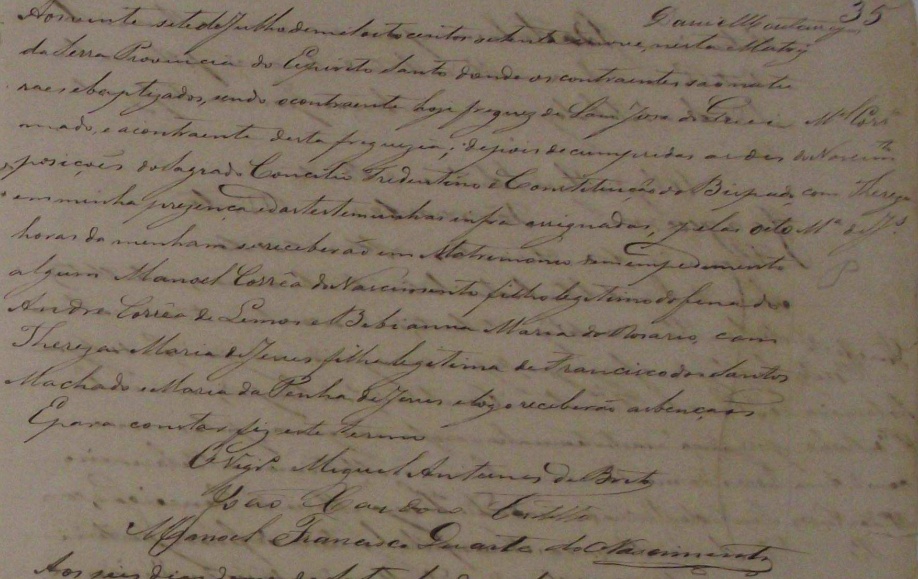 35
Aos vinte sete de Julho de mil oito centos oitenta e nove, nesta Matriz
da Serra Provincia do Espirito Santo donde os contraentes são natu
raes e baptizados, sendo o contraente hoje freguez de São José do
M.el Corr
mado, e a contraente desta freguezia; depois de cumpridas as dis
do Nascim.to
posições do Sagrado Concilio Tredentino e Constituição do Bispado
com Thereza
em minha presença e das testemunhas infra assignadas, pelas oito
M.a de J.s
horas da menham se receberão em Matrimonio sem impedimento
algum Manoel Corrêa do Nascimento filho legitimo do finado
André Corrêa de Lemos e Bibianna Maria do Rosario, com
Thereza Maria de Jesus filha legitima de Francisco dos Santos
Machado e Maria da Penha de Jesus e logo receberão as bençaos
E para constar fiz este termo
O Vigr.o Miguel Antunes de
João Cardoso
Manoel Francisco Duarte do Nascimento
Aos seis dias do mez de